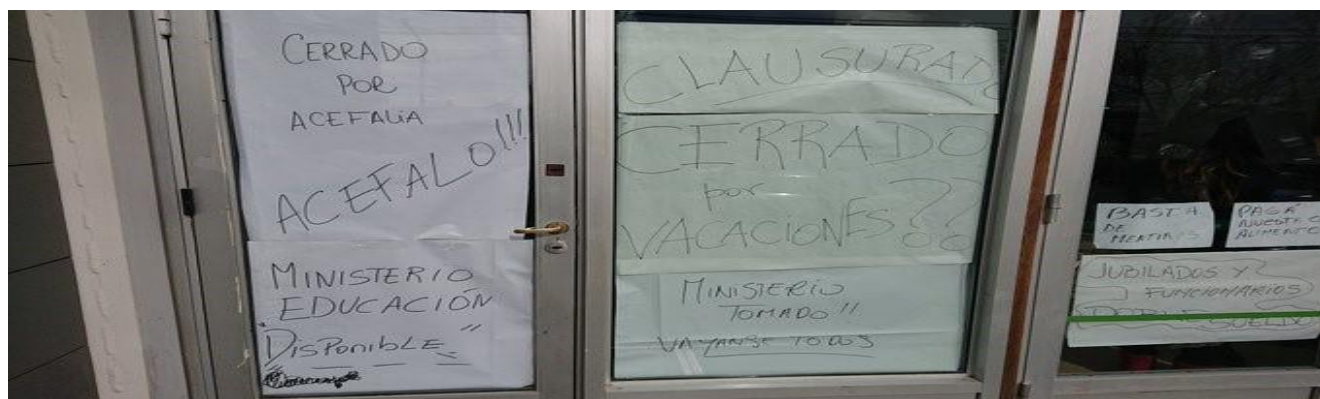 CERRADO
POR
ACEFALIA
ACEFALO!!!
MINISTERIO
EDUCACIÓN
"DISPONIBLE"
CLAUSURADO
CERRADO
por
VACACIONES??
MINISTERIO
TOMADO!!
VAYANSE TODOS
BASTA
DE
MENTIRAS
PAGÁ
NUESTRO
ALIMENTO
JUBILADOS Y
FUNCIONARIOS
DOBLE SUELDO